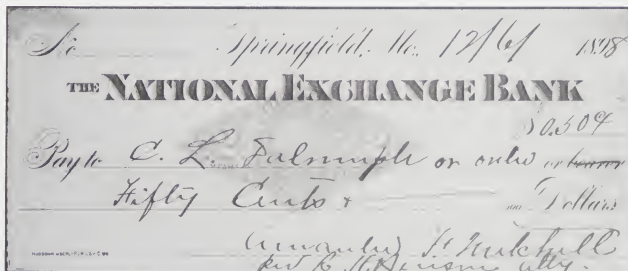 No. Springfield, Mo., 12/6/ 1898
THE NATIONAL EXCHANGE BANK
$0.50¢
Pay to C. L. or order or bearer
Fifty Cents and Dollars
Mitchell
Atty.